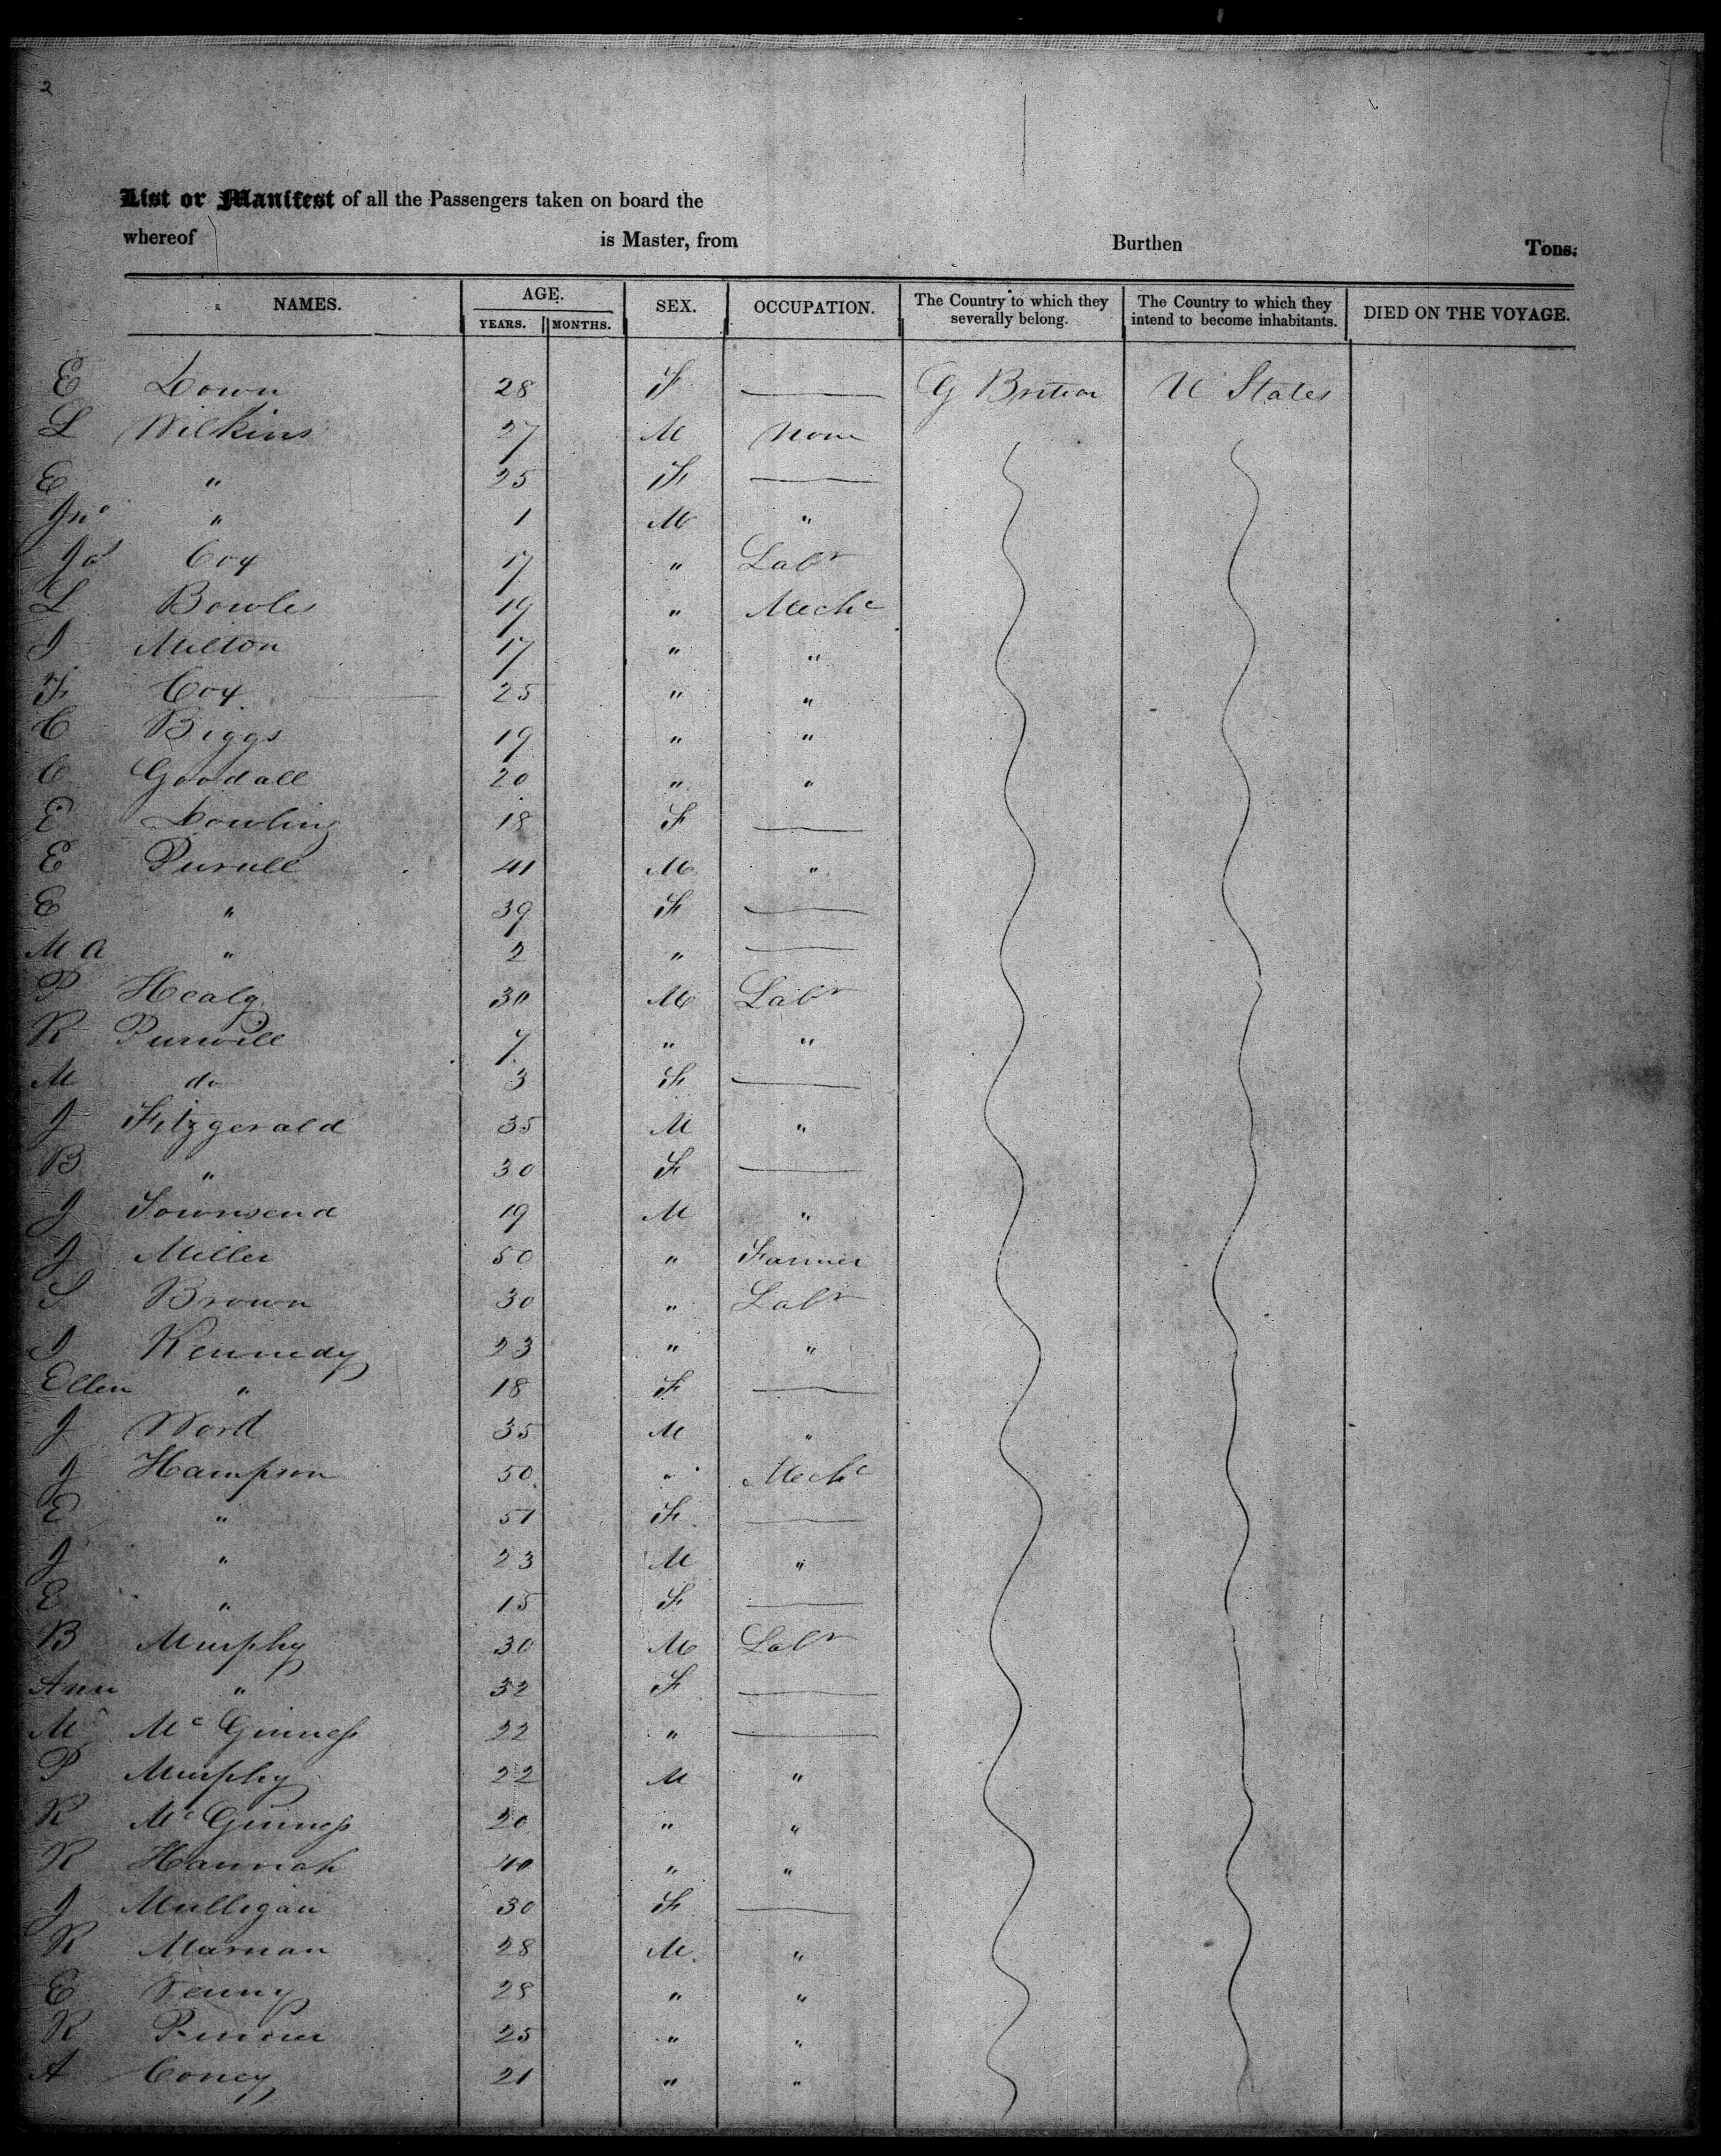 2
List or Manifest of all the Passengers taken on board the
whereof is Master, from Burthen Tons.
NAMES. AGE. YEARS. MONTHS. SEX. OCCUPATION. The Country to which they severally belong. The Country to which they intend to become inhabitants. DIED ON THE VOYAGE.
E Down 28 F — G Britain U States
L Wilkins 27 M None
E " 25 F —
Jno " 1 M "
Jas Cox 17 " Labr
L Bowles 19 " Mechc
J Milton 17 " "
F Cox 25 " "
C Biggs 19 " "
C Goodall 20 " "
E Dowling 18 F —
E 41 M "
E " 39 F —
M A " 2 " —
P Healy 30 M Labr
R 7 " "
M do 3 F —
J Fitzgerald 35 M "
B " 30 F —
J Townsend 19 M "
J Miller 50 " Farmer
S Brown 30 " Labr
J Kennedy 23 " "
Ellen " 18 F —
J Word 35 M "
J Hampson 50 " Mechc
E " 51 F —
J " 23 M "
E " 15 F —
B Murphy 30 M Labr
Ann " 32 F —
M McGinness 22 " —
P Murphy 22 M "
R McGuiness 20 " "
R Hannah 40 " "
J Mulligan 30 F —
R Marnan 28 M "
E 28 " "
R 25 " "
A Coney 21 " "